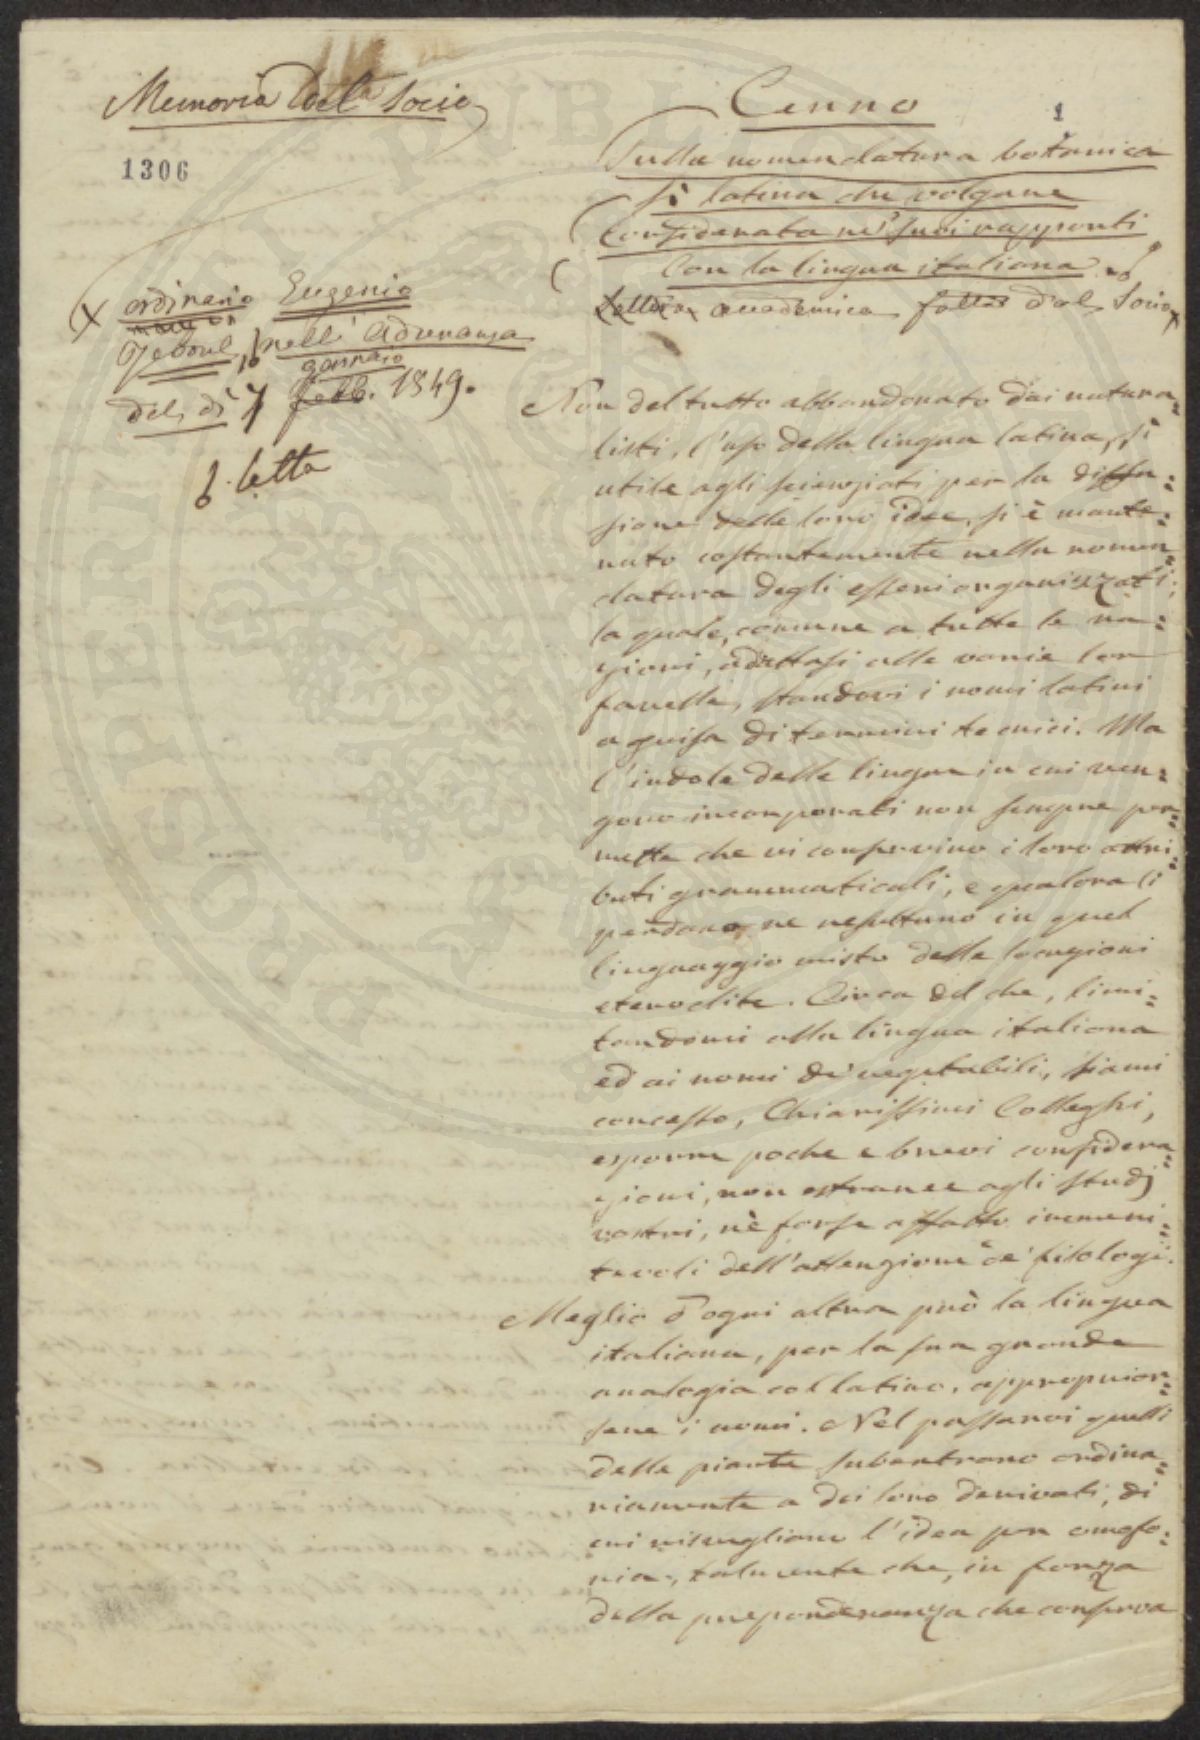 Memoria del Socio
1306
Cenno
1
Sulla nomenclatura botanica
sì latina che volgare
Considerata ne' suoi rapporti
con la lingua italiana
Lettura accademica fatta dal Socio
X ordinario Eugenio
Reboul, nell' Adunanza
gennaio
del dì 7 febb. 1849.
letta
Non del tutto abbandonato dai natura=
listi, l'uso della lingua latina, sì
utile agli scienziati per la diffu=
sione delle loro idee, si è mante=
nuto costantemente nella nomen=
clatura degli esseri organizzati;
la quale, comune a tutte le na=
zioni, adattasi alle varie lor
favelle, standovi i nomi latini
a guisa di termini tecnici. Ma
l'indole delle lingue in cui ven=
gono incorporati non sempre per=
mette che vi conservino i loro attri=
buti grammaticali, e qualora li
perdano, ne resultano in quel
linguaggio misto delle locuzioni
eteroclite. Circa del che, limi=
tandomi alla lingua italiana
ed ai nomi de' vegetabili, siami
concesso, Chiarissimi Colleghi,
esporre poche e brevi considera=
zioni, non estranee agli studj
vostri, nè forse affatto immeri=
tevoli dell'attenzione de' filologi.
Meglio d'ogni altra può la lingua
italiana, per la sua grande
analogia col latino, appropriar=
sene i nomi. Nel passarvi quelli
delle piante subentrano ordina=
riamente a dei loro derivati, di
cui risvegliano l'idea per omofo=
nia, talmente che, in forza
della preponderanza che conserva